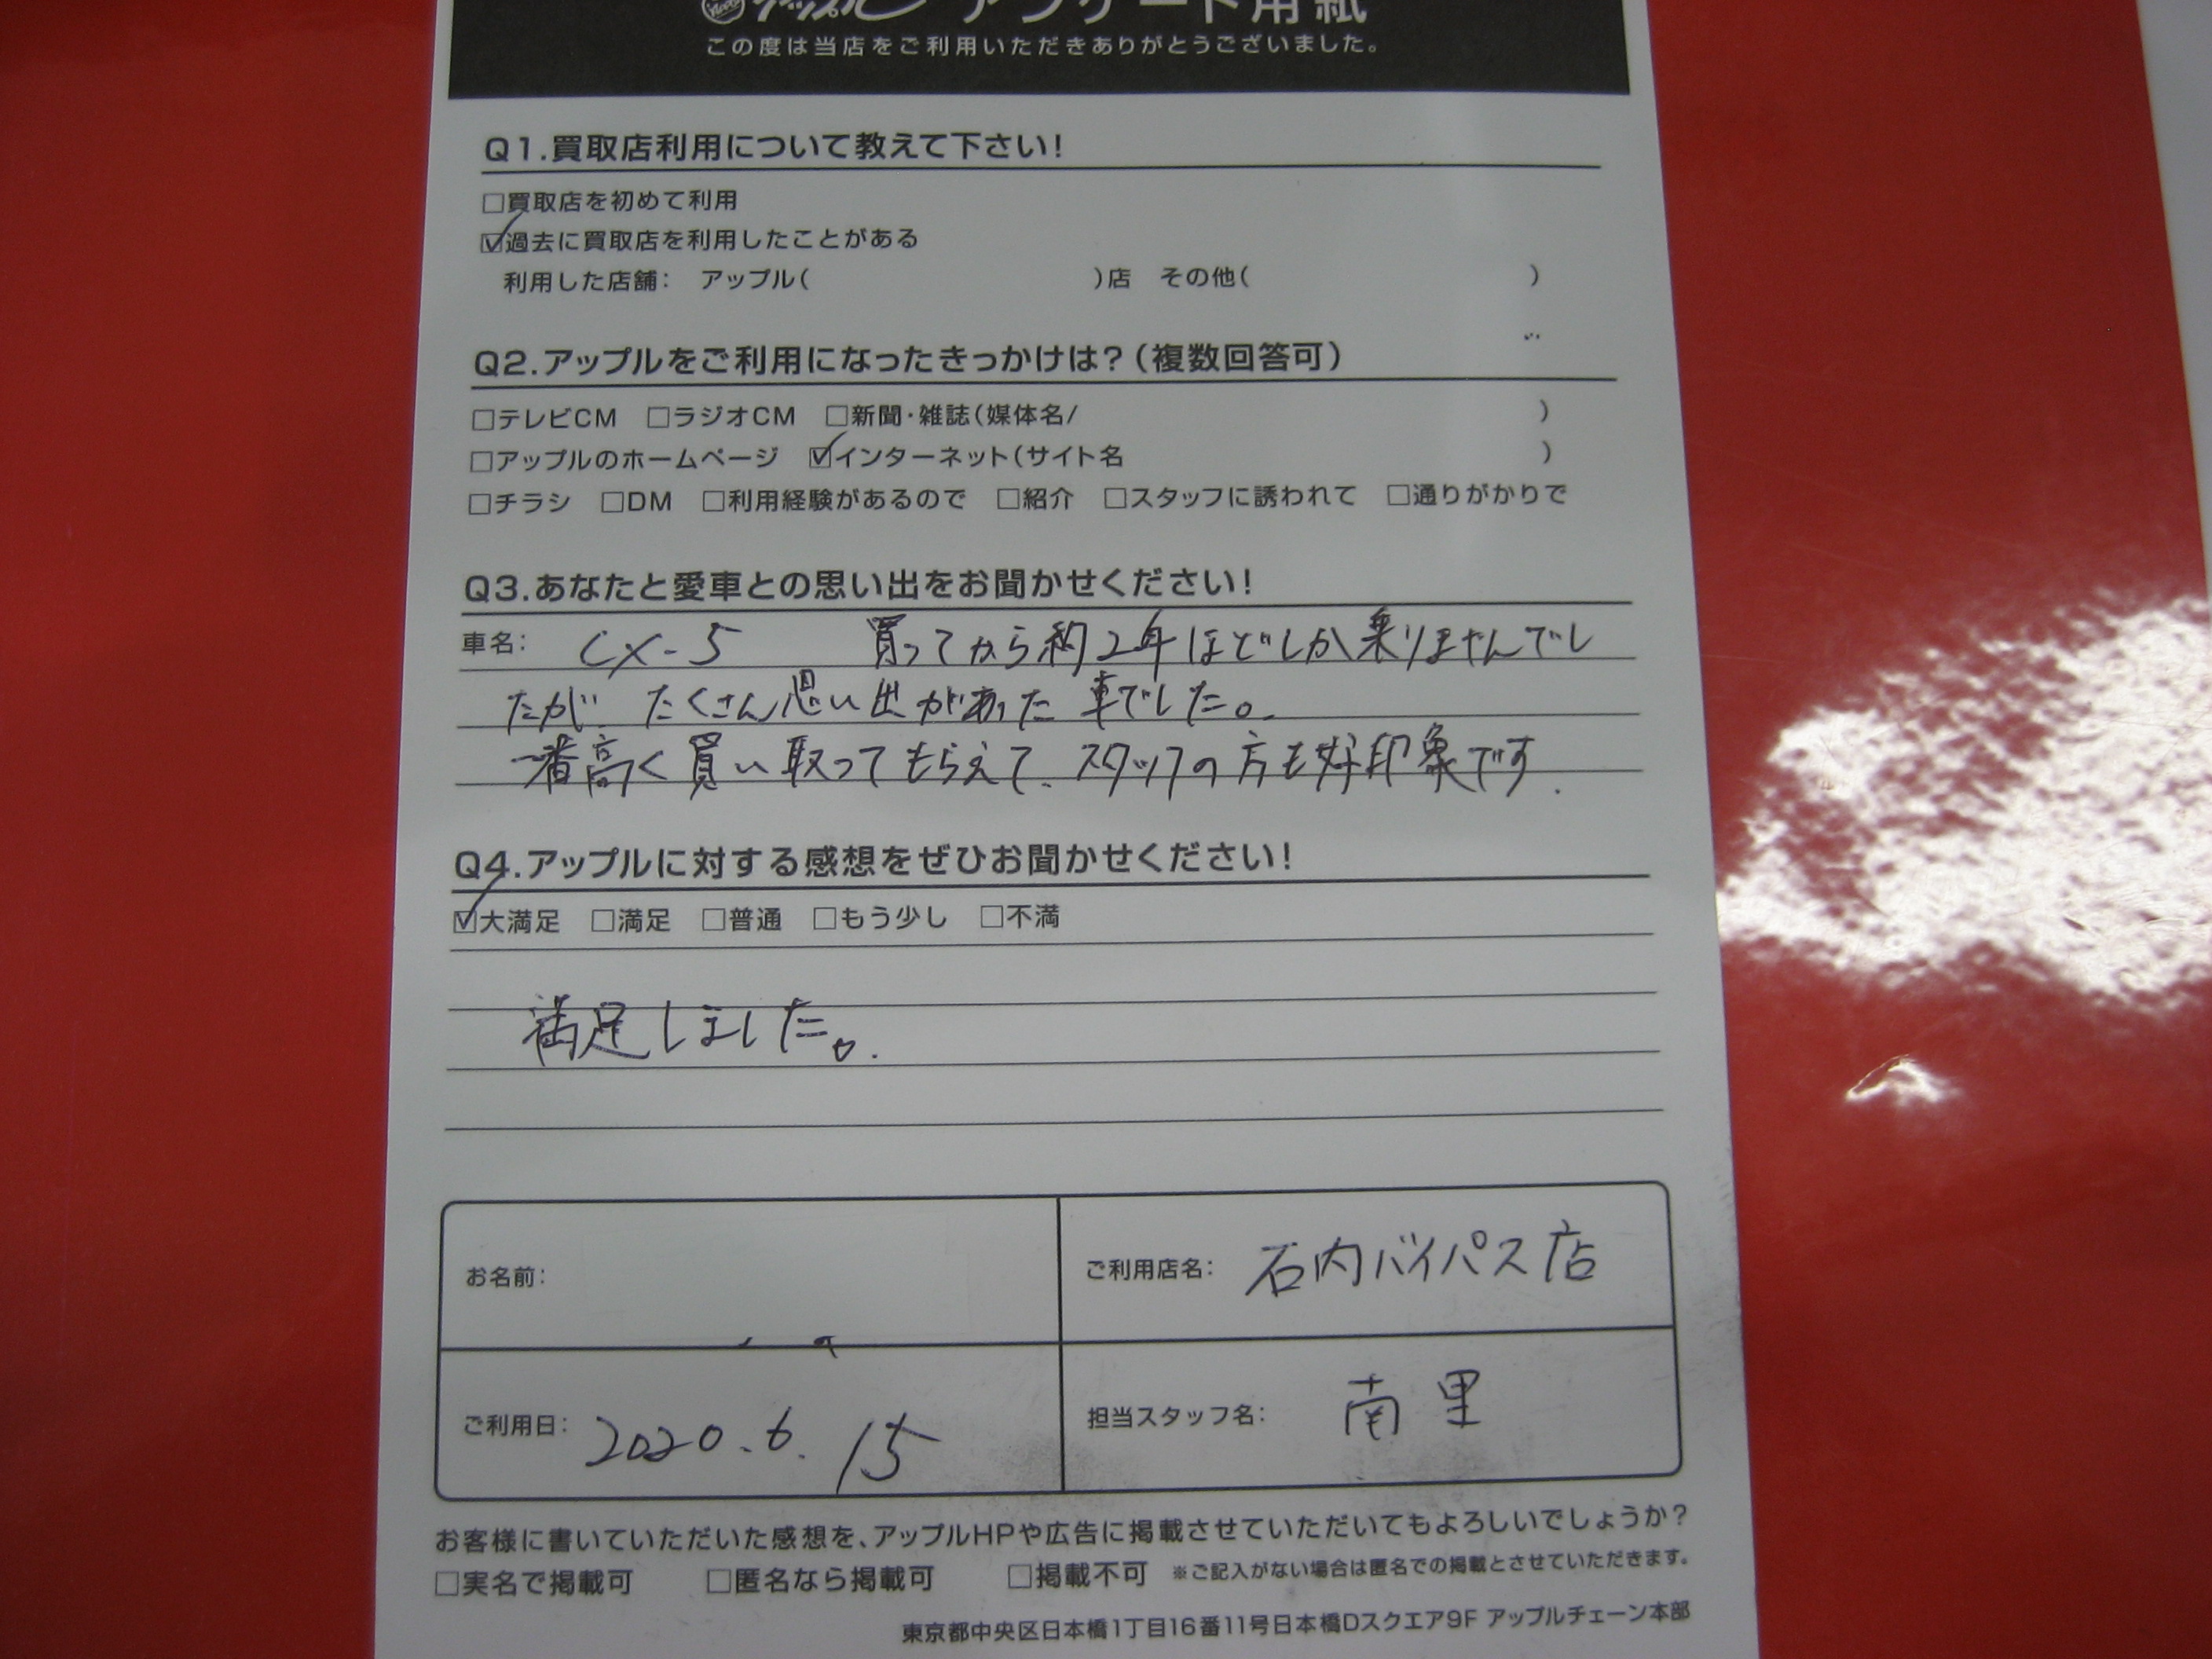 アップル アンケート用紙
この度は当店をご利用いただきありがとうございました。
Q1.買取店利用について教えて下さい!
□買取店を初めて利用
☑過去に買取店を利用したことがある
利用した店舗: アップル( )店 その他( )
Q2.アップルをご利用になったきっかけは?(複数回答可)
□テレビCM □ラジオCM □新聞・雑誌(媒体名/ )
□アップルのホームページ ☑インターネット(サイト名 )
□チラシ □DM □利用経験があるので □紹介 □スタッフに誘われて □通りがかりで
Q3.あなたと愛車との思い出をお聞かせください!
車名: CX-5 買ってから約2年ほどしか乗りませんでし
たが、たくさん思い出があった車でした。
一番高く買い取ってもらえて、スタッフの方も好印象です.
Q4.アップルに対する感想をぜひお聞かせください!
☑大満足 □満足 □普通 □もう少し □不満
満足しました。
お名前:
ご利用店名: 石内バイパス店
ご利用日: 2020.6.15
担当スタッフ名: 南里
お客様に書いていただいた感想を、アップルHPや広告に掲載させていただいてもよろしいでしょうか?
□実名で掲載可 □匿名なら掲載可 □掲載不可 ※ご記入がない場合は匿名での掲載とさせていただきます。
東京都中央区日本橋1丁目16番11号日本橋Dスクエア9F アップルチェーン本部